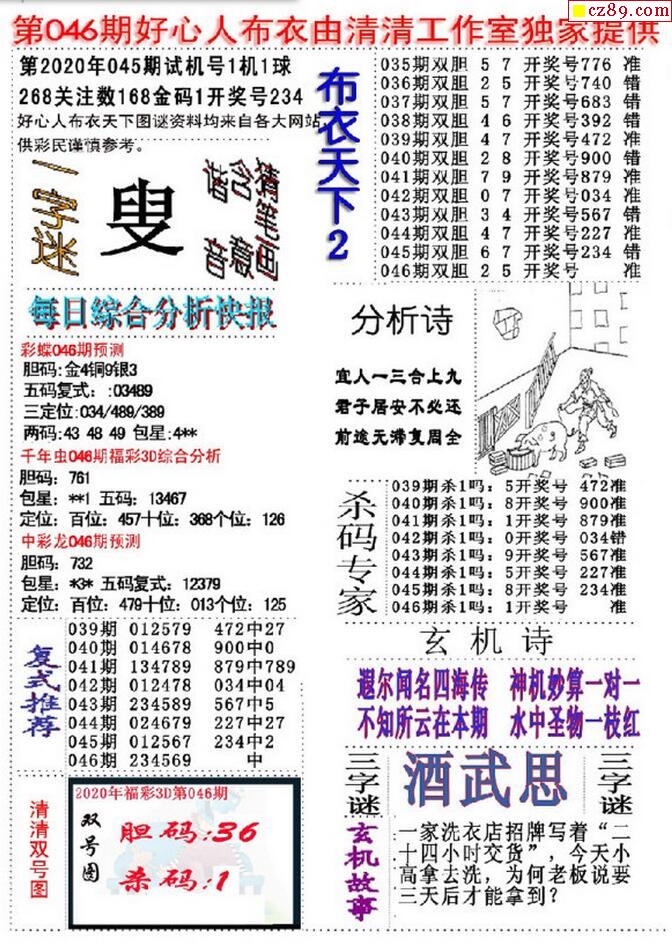 cz89.com
第046期好心人布衣由清清工作室独家提供
第2020年045期试机号1机1球
268关注数168金码1开奖号234
好心人布衣天下图谜资料均来自各大网站,
供彩民谨慎参考。
一字迷
叟
猜笔画
含意
谐音
每日综合分析快报
彩蝶046期预测
胆码:金4铜9银3
五码复式：:03489
三定位:034/489/389
两码:43 48 49 包星:4**
千年虫046期福彩3D综合分析
胆码：761
包星：**1 五码：13467
定位：百位：457十位：368个位：126
中彩龙046期预测
胆码：732
包星：*3* 五码复式：12379
定位：百位：479十位：013个位：125
复式推荐
039期 012579 472中27
040期 014678 900中0
041期 134789 879中789
042期 012478 034中04
043期 234589 567中5
044期 024679 227中27
045期 012567 234中2
046期 234569 中
清清双号图
2020年福彩3D第046期
双号图
胆码:36
杀码:1
布衣天下2
035期双胆 5 7 开奖号776 准
036期双胆 2 5 开奖号740 错
037期双胆 5 7 开奖号683 错
038期双胆 4 6 开奖号392 错
039期双胆 4 7 开奖号472 准
040期双胆 2 8 开奖号900 错
041期双胆 7 9 开奖号879 准
042期双胆 0 7 开奖号034 准
043期双胆 3 4 开奖号567 错
044期双胆 4 7 开奖号227 准
045期双胆 6 7 开奖号234 错
046期双胆 2 5 开奖号 准
分析诗
宜人一三合上九
君子居安不必还
前途无滞复周全
杀码专家
039期杀1吗：5开奖号 472准
040期杀1吗：8开奖号 900准
041期杀1吗：1开奖号 879准
042期杀1吗：0开奖号 034错
043期杀1吗：9开奖号 567准
044期杀1吗：5开奖号 227准
045期杀1吗：8开奖号 234准
046期杀1吗：1开奖号 准
玄机诗
遐尔闻名四海传 神机妙算一对一
不知所云在本期 水中圣物一枝红
三字谜
酒武思
三字谜
玄机故事
一家洗衣店招牌写着“二
十四小时交货”，今天小
高拿去洗，为何老板说要
三天后才能拿到？